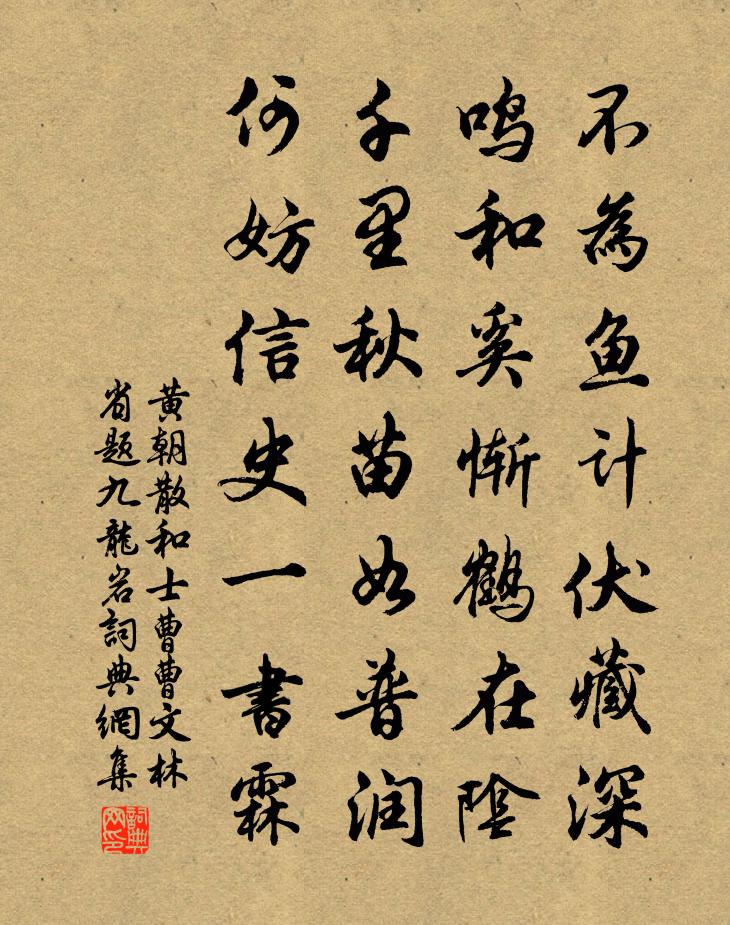 不為魚计伏藏深
鸣和奚惭鶴在陰
千里秋苗如普润
何妨信史一書霖
黄朝散和士曹曹文林
省题九龍岩詞典網集
詞典
网印